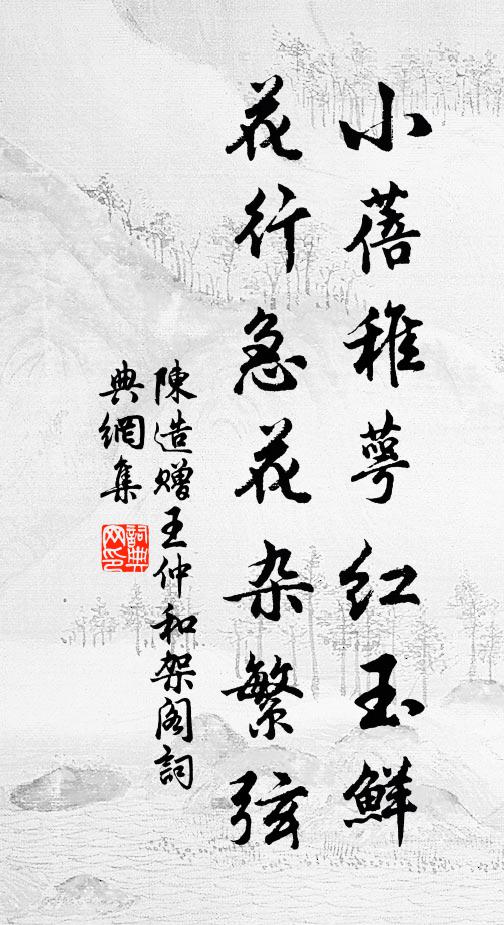 小蓓稚萼红玉鲜
花行急花杂繁弦
陳造贈王仲和架阁詞
典網集
詞典网印